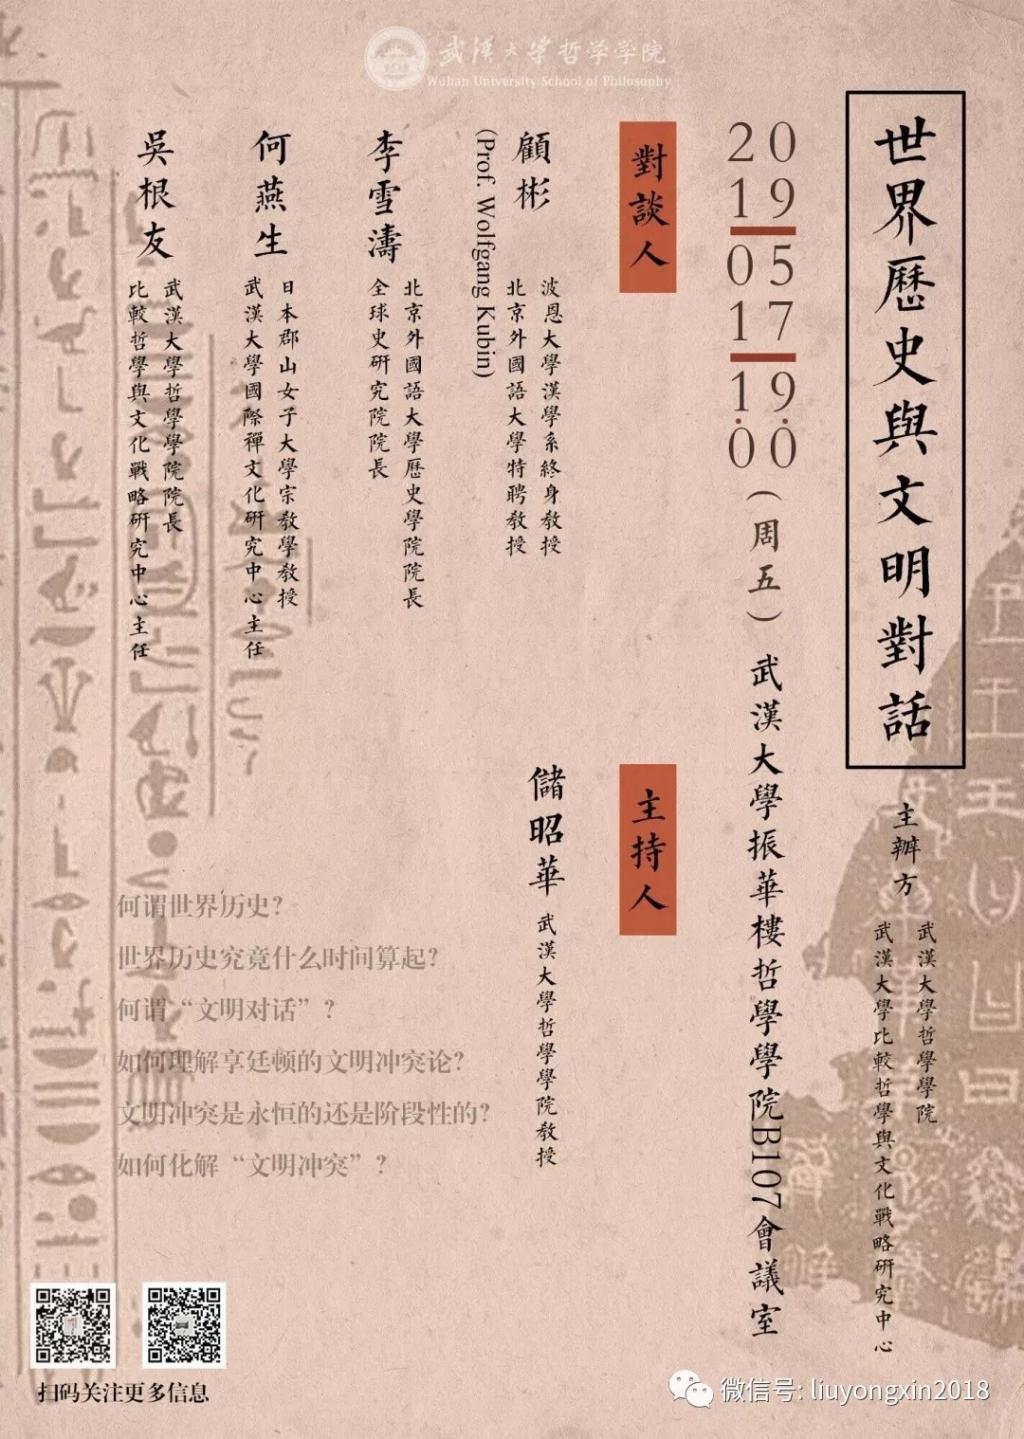 武漢大学哲学学院
Wuhan University School of Philosophy
世界歷史與文明對話
主辦方
武漢大學哲學學院
武漢大學比較哲學與文化戰略研究中心
2019
0517
19:00
(周五)武漢大學振華樓哲學學院B107會議室
對談人
顧彬
(Prof. Wolfgang Kubin)
波恩大學漢學系終身教授
北京外國語大學特聘教授
李雪濤
北京外國語大學歷史學院院長
全球史研究院院長
何燕生
日本郡山女子大學宗教學教授
武漢大學國際禪文化研究中心主任
吳根友
武漢大學哲學學院院長
比較哲學與文化戰略研究中心主任
主持人
儲昭華
武漢大學哲學學院教授
何谓世界历史?
世界历史究竟什么时间算起?
何谓“文明对话”?
如何理解享廷顿的文明冲突论?
文明冲突是永恒的还是阶段性的?
如何化解“文明冲突”?
扫码关注更多信息
微信号: liuyongxin2018